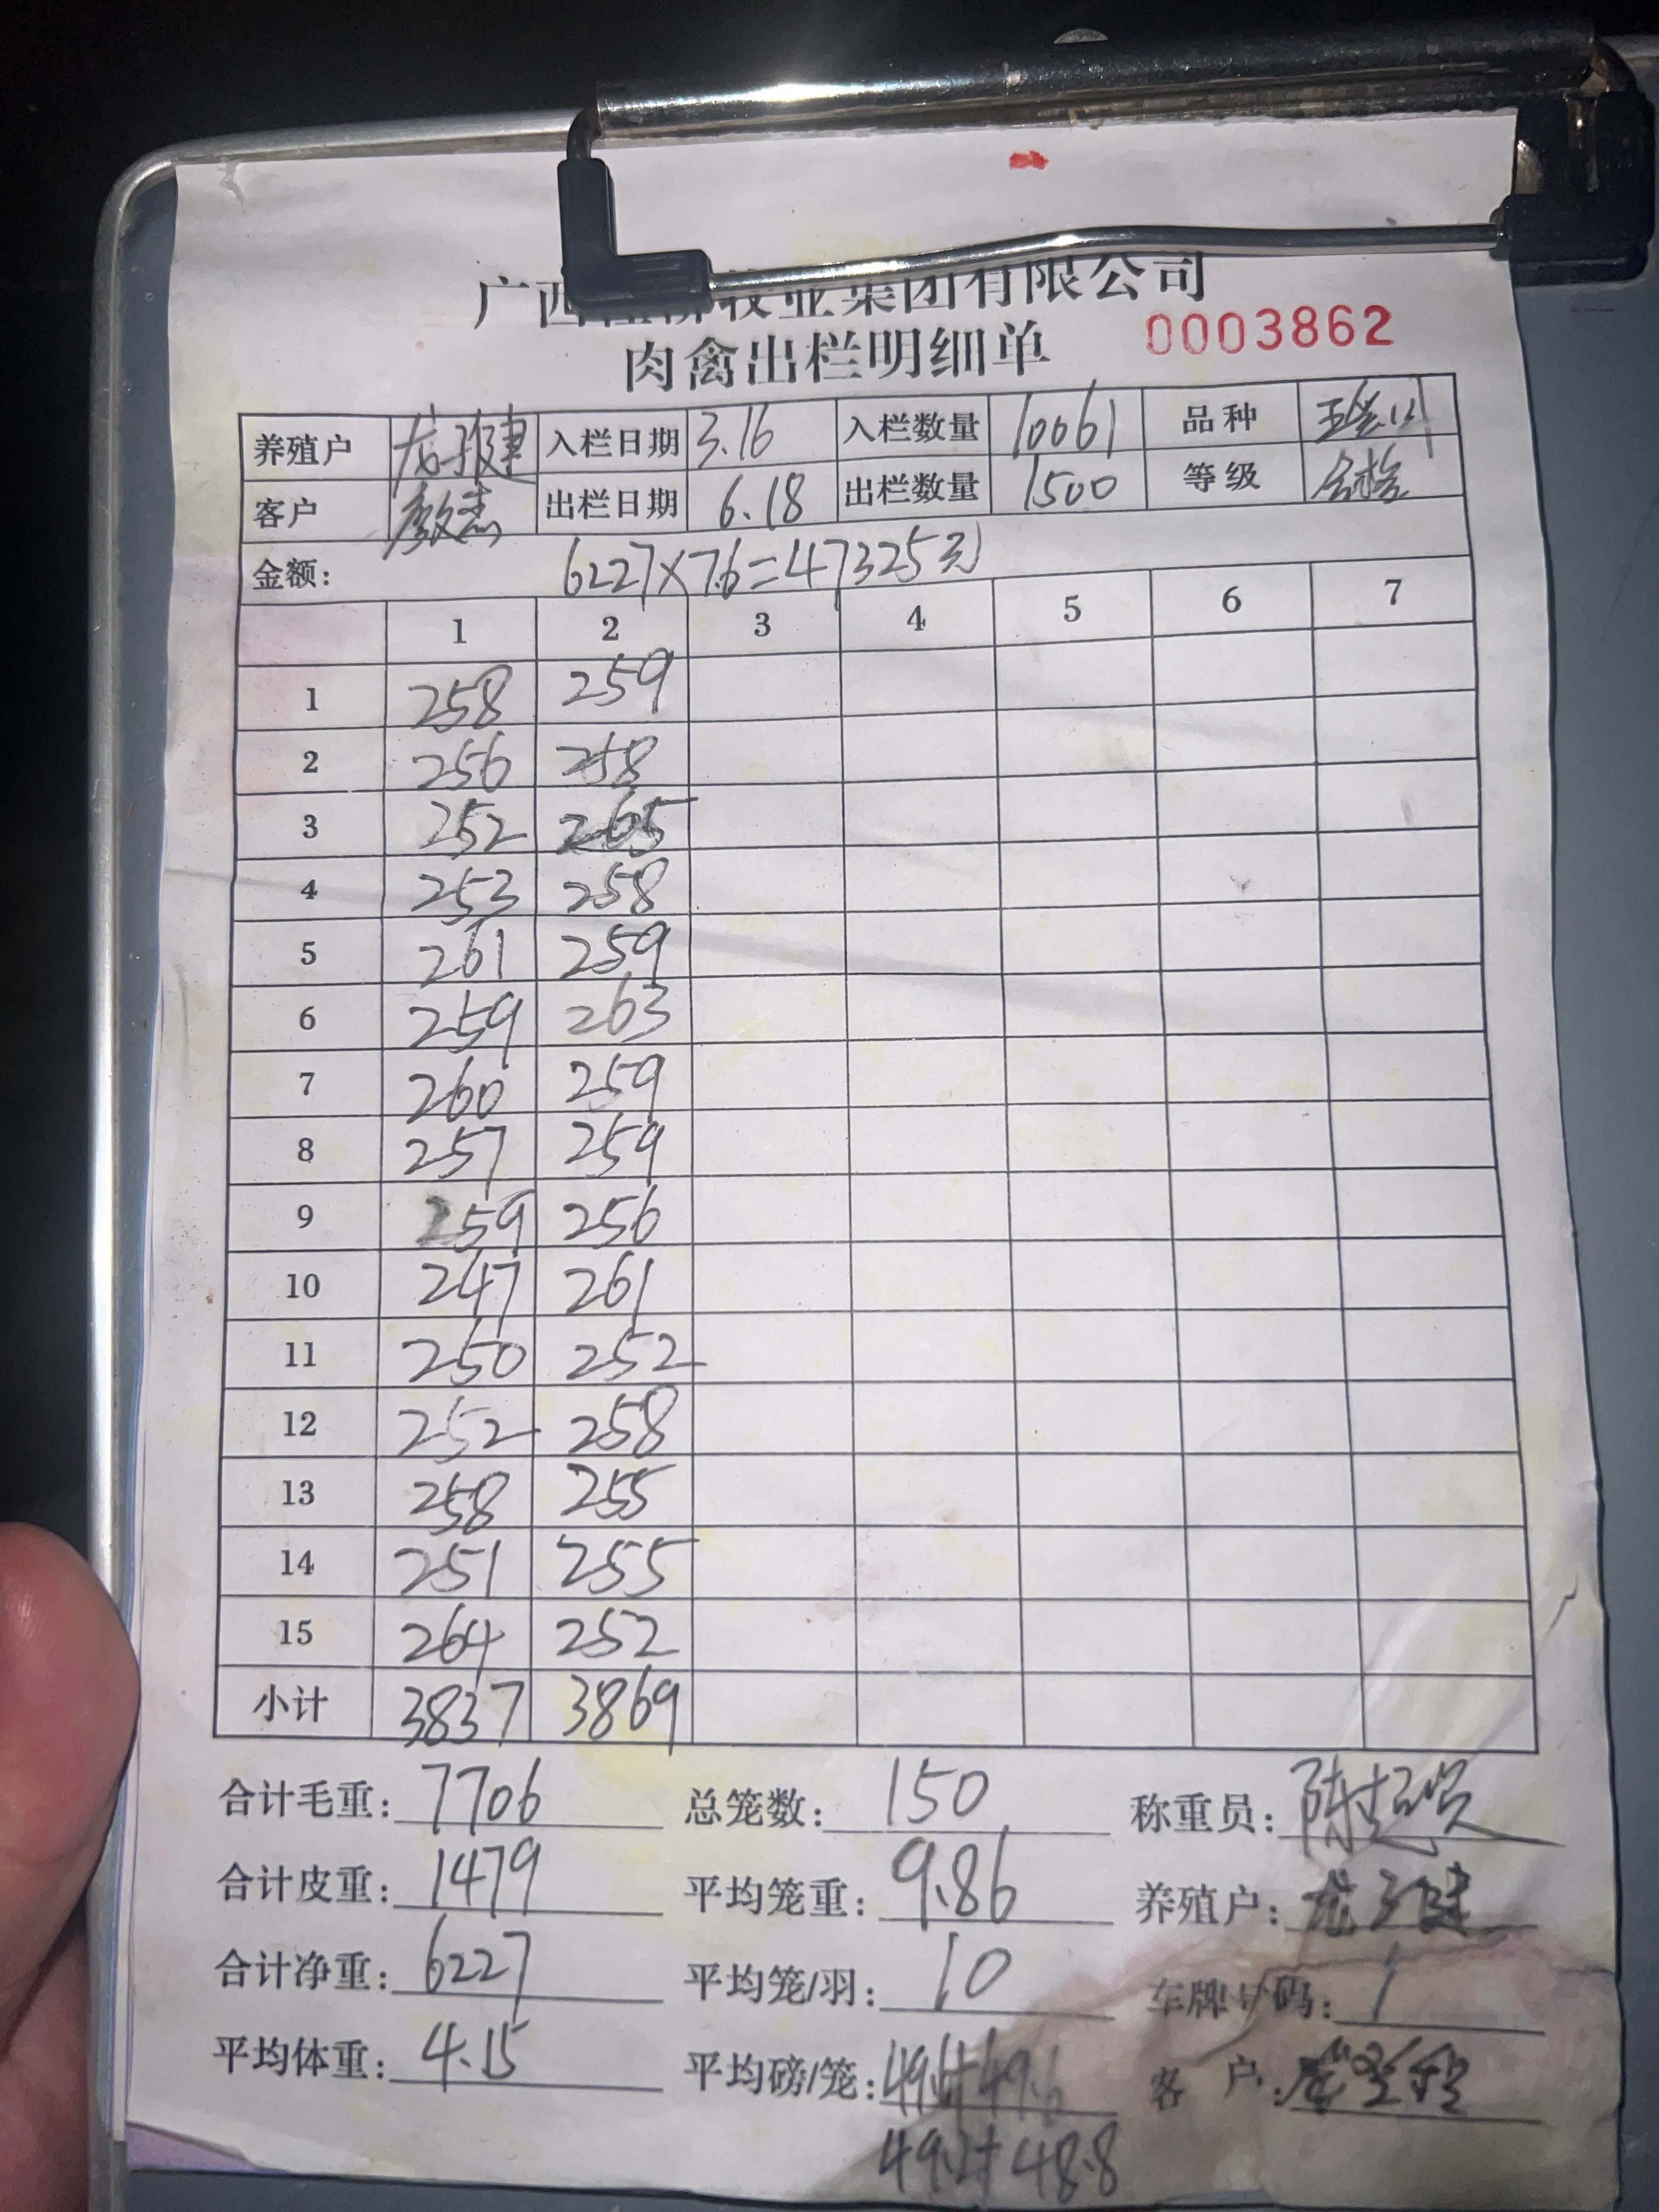 广西 牧业集团有限公司
肉禽出栏明细单 0003862
养殖户 入栏日期 3.16 入栏数量 10061 品种
客户 出栏日期 6.18 出栏数量 1500 等级
金额: 6227×7.6=47325元
1 2 3 4 5 6 7
1 258 259
2 256 258
3 252 265
4 253 258
5 261 259
6 259 263
7 260 259
8 257 259
9 259 256
10 247 261
11 250 252
12 252 258
13 258 255
14 251 255
15 264 252
小计 3837 3869
合计毛重: 7706 总笼数: 150 称重员:
合计皮重: 1479 平均笼重: 9.86 养殖户:
合计净重: 6227 平均笼/羽: 10 车牌号码: 1
平均体重: 4.15 平均磅/笼: 49.6
49.2+48.8 客 户: